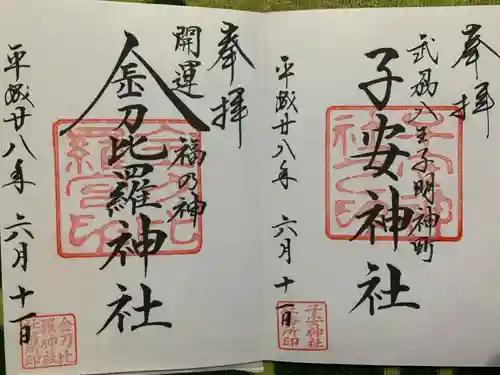 奉拝
武州八王子明神町
子安神社
平成廿八年 六月十一日
子安神社
社務所印
奉拝
開運 福の神
金刀比羅神社
平成廿八年 六月十一日
金刀比
羅神社